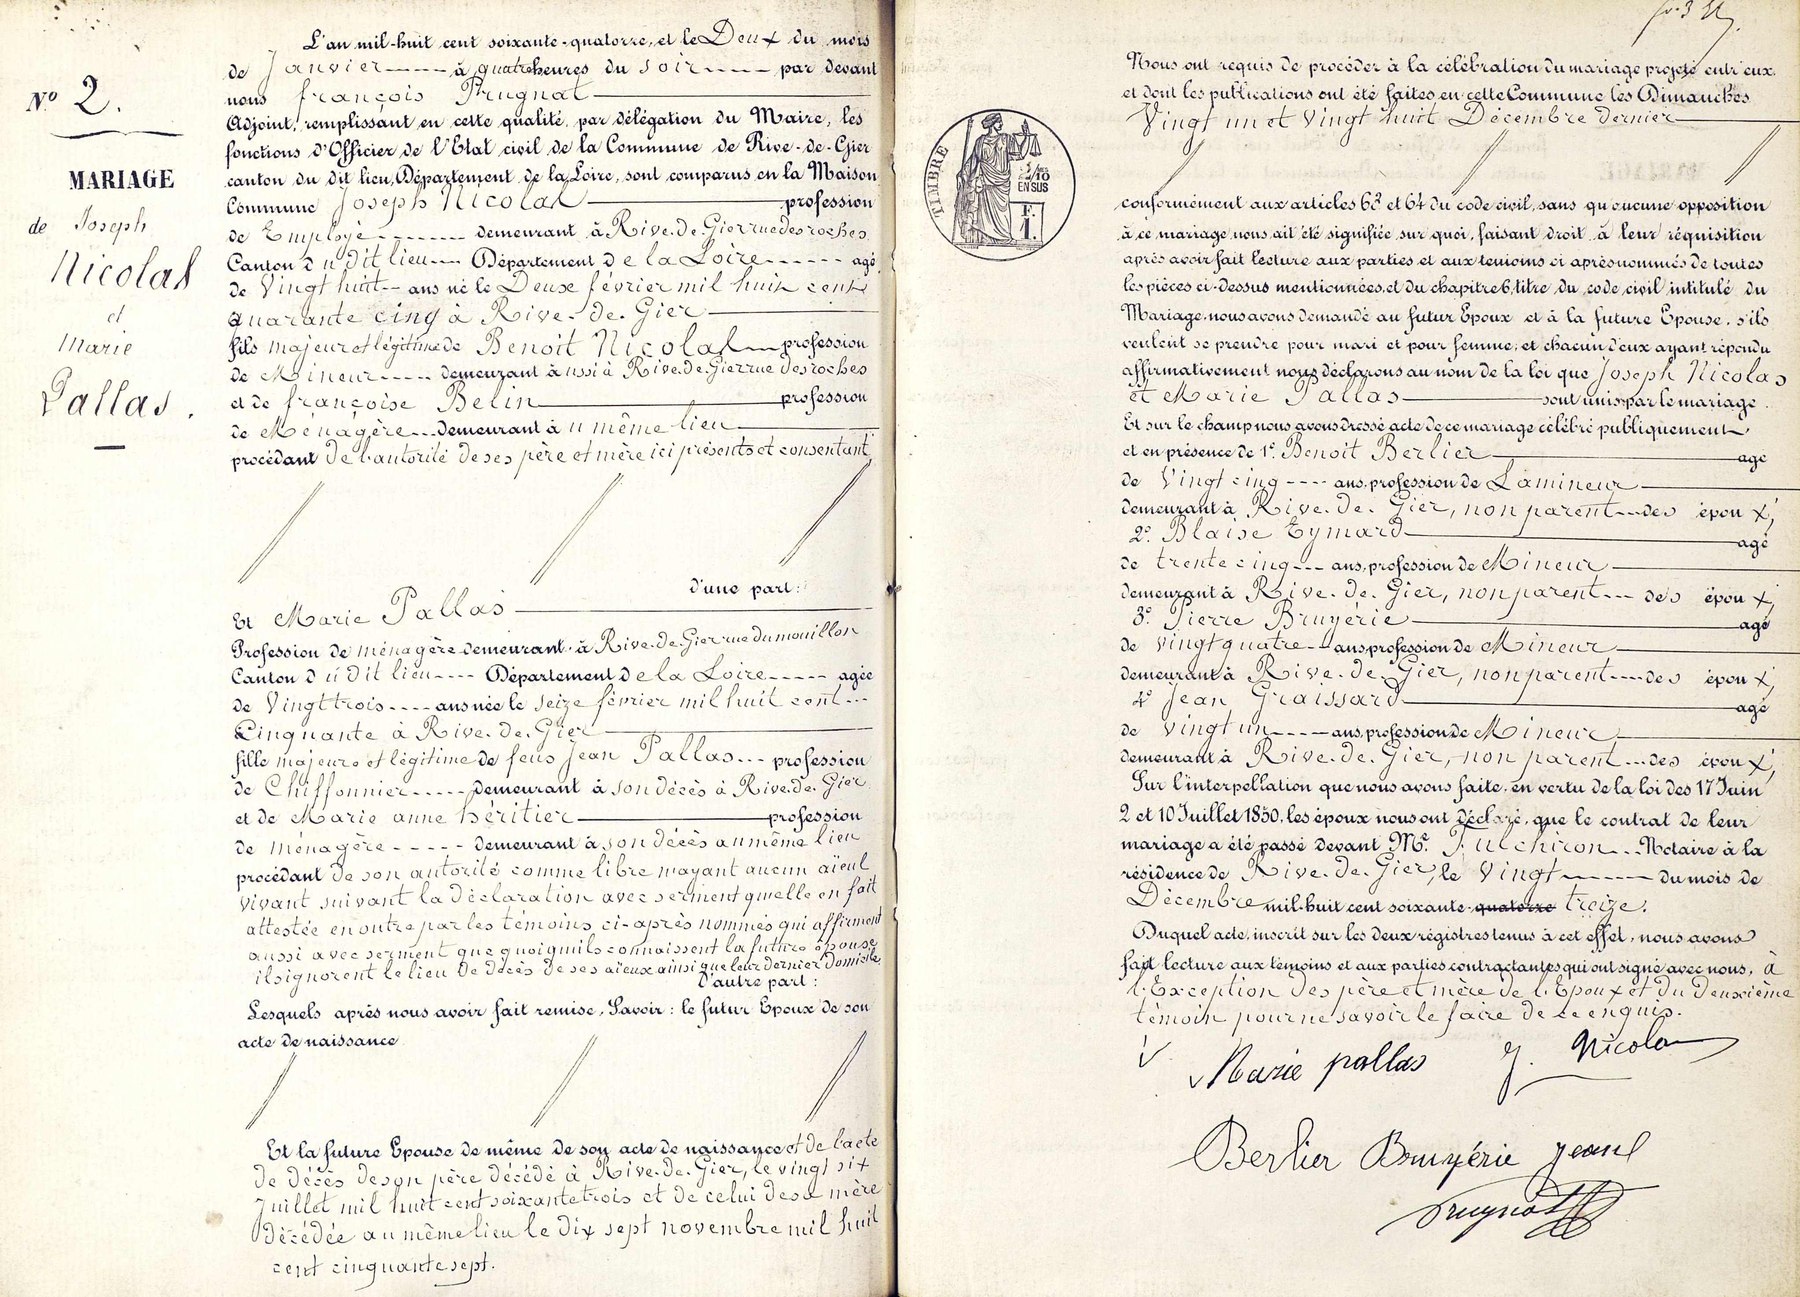 N° 2.
MARIAGE
de Joseph
Nicolas
et
Marie
Pallas.
L'an mil-huit cent soixante-quatorze, et le Deux du mois
de Janvier à quatre heures du soir par devant
nous françois Prugnat
Adjoint, remplissant en cette qualité, par délégation du Maire, les
fonctions d'Officier de l'Etat civil de la Commune de Rive-de-Gier
canton du dit lieu, Département de la Loire, sont comparus en la Maison
Commune Joseph Nicolas profession
de Employé demeurant à Rive-de-Gier rue des roches
Canton du dit lieu Département de la Loire agé
de Vingt huit ans né le Deux février mil huit cent
quarante cinq à Rive-de-Gier
fils majeur et légitime de Benoit Nicolas profession
de Mineur demeurant aussi à Rive-de-Gier rue des roches
et de françoise Belin profession
de Ménagère demeurant au même lieu
procédant de l'autorité de ses père et mère ici présents et consentant
d'une part:
Et Marie Pallas
Profession de ménagère demeurant à Rive-de-Gier rue du mouillon
Canton du dit lieu Département de la Loire agée
de Vingt trois ans née le seize février mil huit cent
Cinquante à Rive-de-Gier
fille majeure et légitime de feus Jean Pallas profession
de Chiffonnier demeurant à son décès à Rive-de-Gier
et de Marie anne héritier profession
de ménagère demeurant à son décès au même lieu
procédant de son autorité comme libre n'ayant aucun aïeul
vivant suivant la déclaration avec serment qu'elle en fait
attestée en outre par les témoins ci-après nommés qui affirment
aussi avec serment que quoiqu'ils connaissent la future épouse
ils ignorent le lieu de décès de ses aïeux ainsi que leur dernier domicile
d'autre part:
Lesquels après nous avoir fait remise, Savoir: le futur Epoux de son
acte de naissance
Et la future Epouse de même de son acte de naissance et de l'acte
de décès de son père décédé à Rive-de-Gier, le vingt six
Juillet mil huit cent soixante trois et de celui de sa mère
décédée au même lieu le dix sept novembre mil huit
cent cinquante sept.
TIMBRE
2/10
EN SUS
F.
1.
Nous ont requis de procéder à la célébration du mariage projeté entr'eux
et dont les publications ont été faites en cette Commune les Dimanches
Vingt un et Vingt huit Décembre dernier
conformément aux articles 63 et 64 du code civil, sans qu'aucune opposition
à ce mariage nous ait été signifiée sur quoi, faisant droit à leur réquisition
après avoir fait lecture aux parties et aux temoins ci après nommés de toutes
les pièces ci-dessus mentionnées, et du chapitre 6, titre du code civil intitulé du
Mariage, nous avons demandé au futur Epoux et à la future Epouse, s'ils
veulent se prendre pour mari et pour femme, et chacun d'eux ayant répondu
affirmativement nous déclarons au nom de la loi que Joseph Nicolas
et Marie Pallas sont unis par le mariage.
Et sur le champ nous avons dressé acte de ce mariage célébré publiquement
et en présence de 1° Benoit Berlier agé
de Vingt cinq ans, profession de Lamineur
demeurant à Rive-de-Gier, non parent des époux,
2° Blaise Eymard agé
de trente cinq ans, profession de Mineur
demeurant à Rive-de-Gier, non parent des époux,
3° Pierre Bruyérie agé
de vingt quatre ans profession de Mineur
demeurant à Rive-de-Gier, non parent des époux,
4° Jean Graissard agé
de vingt un ans, profession de Mineur
demeurant à Rive-de-Gier, non parent des époux,
Sur l'interpellation que nous avons faite, en vertu de la loi des 17 Juin
2 et 10 Juillet 1850, les époux nous ont déclaré, que le contrat de leur
mariage a été passé devant Me. Fulchiron Notaire à la
résidence de Rive-de-Gier, le Vingt du mois de
Décembre mil-huit cent soixante-quatorze treize.
Duquel acte, inscrit sur les deux régistres tenus à cet effet, nous avons
fait lecture aux témoins et aux parties contractantes qui ont signé avec nous, à
l'Exception des père et mère de l'Epoux et du deuxième
témoin pour ne savoir le faire de ce enquis.
Marie pallas J. Nicolas
Berlier Bruyérie Jean
Prugnat